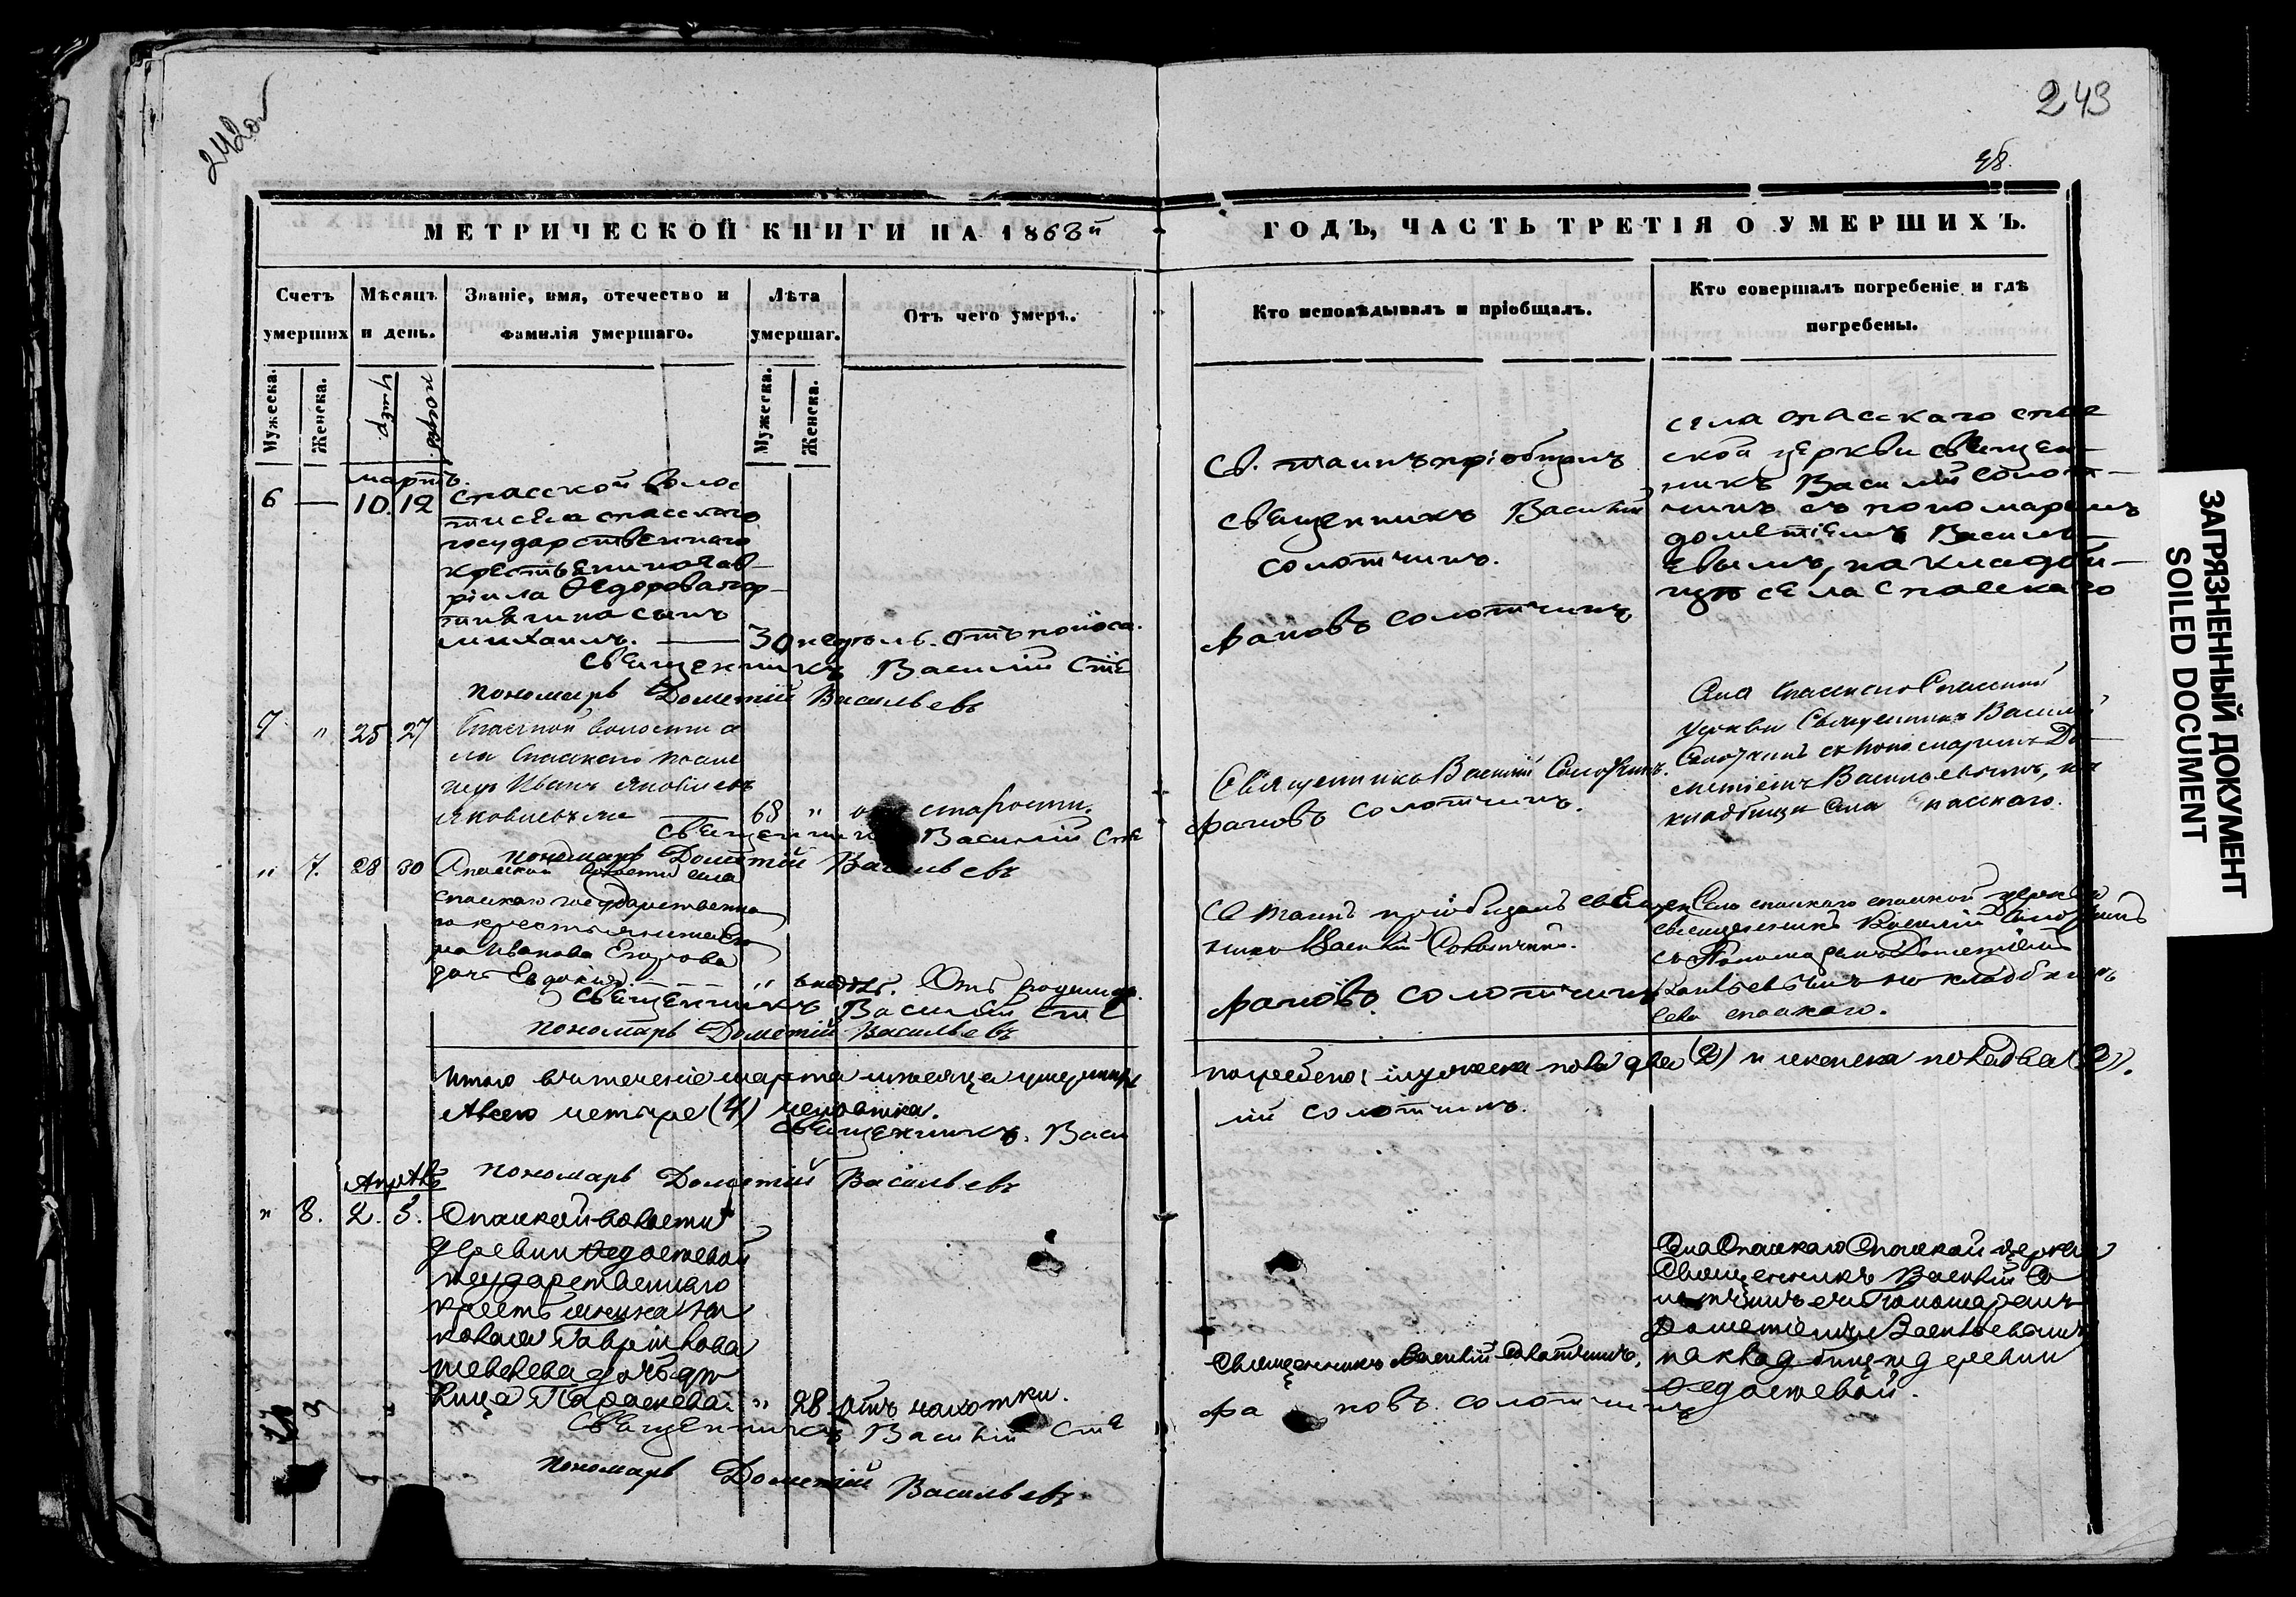 242об
243
48.
МЕТРИЧЕСКОЙ КНИГИ НА 1868й
ГОДЪ, ЧАСТЬ ТРЕТІЯ О УМЕРШИХЪ.
Счетъ умерших
Мѣсяцъ и день.
Званіе, имя, отечество и фамилія умершаго.
Лѣта умершаг.
Отъ чего умеръ.
Кто исповѣдывалъ и пріобщалъ.
Кто совершалъ погребеніе и гдѣ погребены.
Мужеска.
Женска.
Мужеска.
Женска.
мартъ.
6 — 10. 12
спасской волос
ти села спасскаго
государственнаго
крестьянина Гав
ріила Федорова
сынъ
михаилъ. — 30 недѣль. отъ поноса.
священникъ Василій Сте
пономарь Дометій Васильевъ
Св. таинъ пріобщалъ
священникъ Василій
солотчинъ.
фановъ солотчинъ
села спасскаго спас
ской церкви священ-
никъ Василій Солот-
чинъ съ пономаремъ
дометіемъ Василь-
евымъ, на кладби-
щѣ села спасскаго
7 " 25 27
Спасской волости с
ла Спасскаго
Иванъ Яковлевъ
68 " отъ старости.
священникъ Василій Сте
пономарь Дометій Васильевъ
Священникъ Василій Солотчинъ.
фановъ солотчинъ.
Села Спасскаго Спасской
церкви Священникъ Василій
Солотчинъ съ пономаремъ До
метіемъ Васильевымъ, на
кладбищѣ села Спасскаго.
" 7. 28 30
Спасской волости села
спаскаго государственна
го крестьянина
Иванова Егорова
дочь Евдокія. — — " недѣл. Отъ родимца.
священникъ Василій Сте
пономарь Дометій Васильевъ
Св таинъ пріобщалъ священ
никъ Василій Солотчинъ.
фановъ. солотчинъ
Села спаскаго спаской церкви
священникъ Василій Солотчинъ
съ Пономаремъ Дометіемъ
Васильевымъ на кладбищѣ
села спаскаго.
Итого въ теченіе марта мѣсяца умершихъ
погребено: мужеска пола два (2) и женска пола два (2).
Авсего четыре (4) человѣка.
священникъ. Васи
лій солотчинъ.
пономарь Дометій Васильевъ
Апрѣль
" 8. 2. 5.
Спаской волости
деревни Федотьевой
государственнаго
крестьянина
Гаврилова
дочь дѣ
вица Параскева. " 28 отъ чахотки.
Священникъ Василій Сте
пономарь Дометій Васильевъ
Священникъ Василій Солотчинъ,
фа новъ солотчинъ
Села Спаскаго Спаской церкви
Священникъ Василій Со
лотчинъ съ Пономаремъ
Дометіемъ Васильевымъ
на кладбищѣ деревни
Федотьевой.
ЗАГРЯЗНЕННЫЙ ДОКУМЕНТ
SOILED DOCUMENT